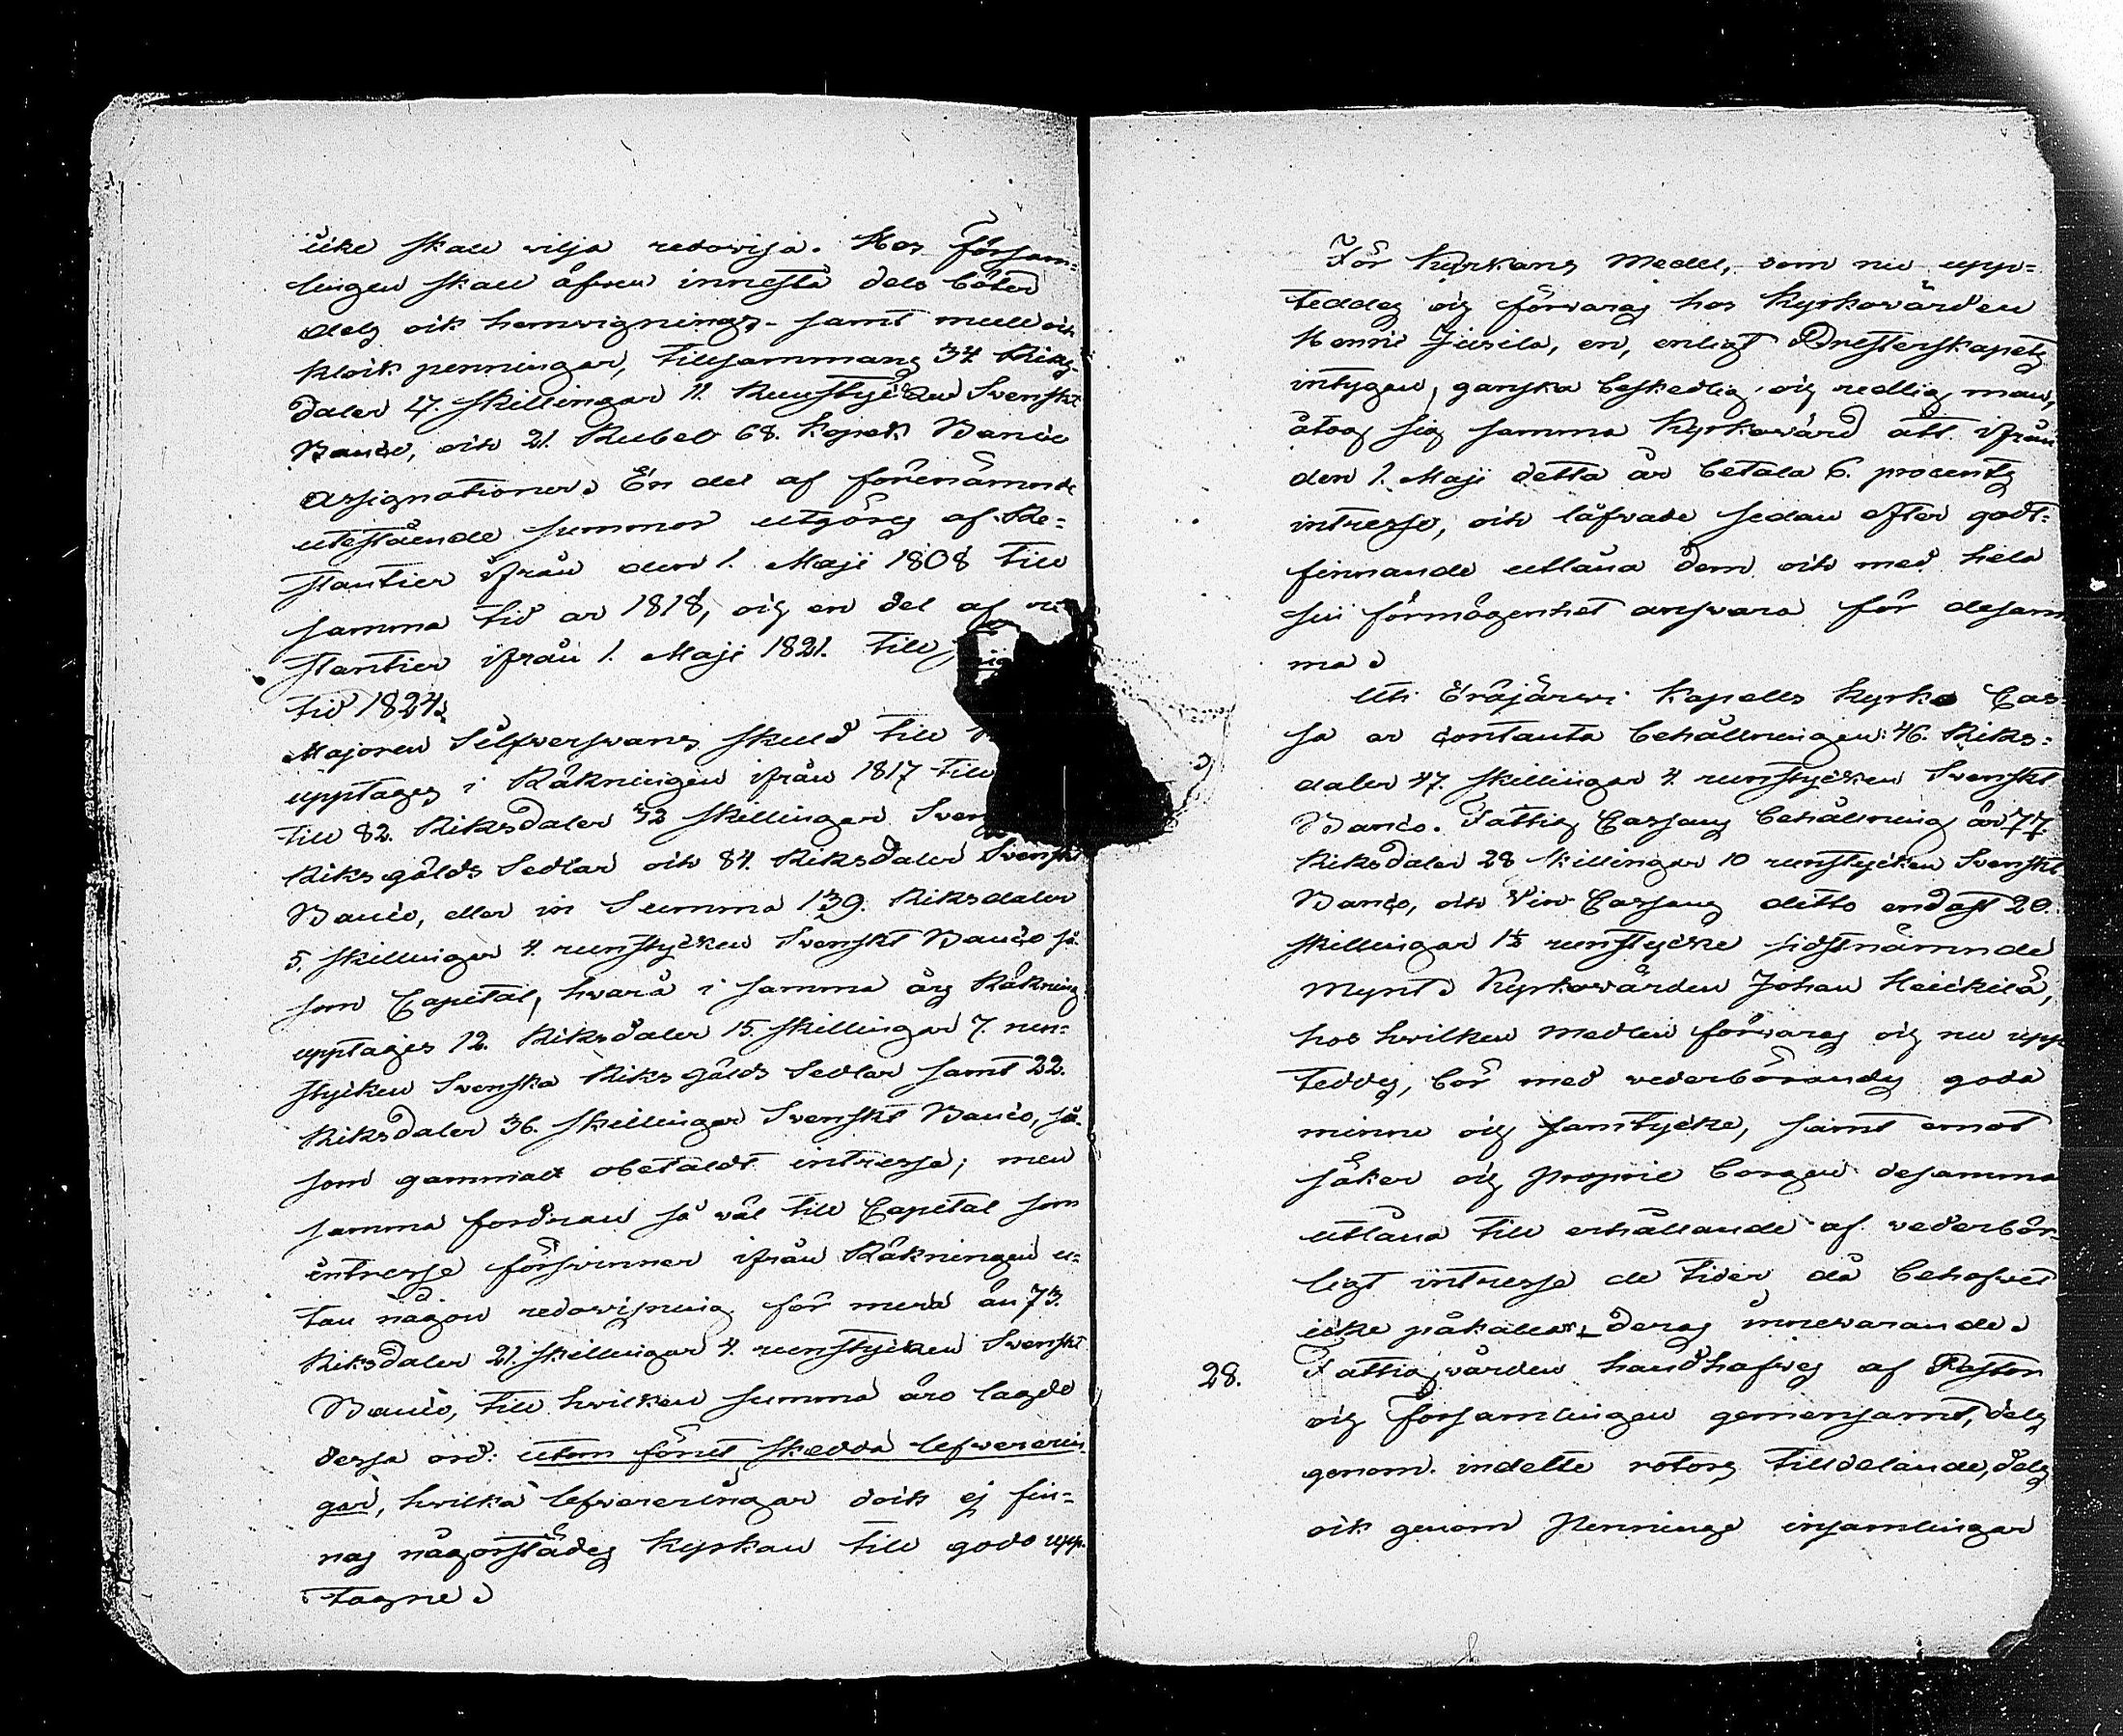 icke skall wilja redowisa. Hos försam-
lingen skall åfwen innestå dels böter
dels ock hemwignings- samt mull och
klock penningar, tillsammans 34 Riks-
daler 47. skillingar 11. Runstycken Svenskt
Banco, och 21. Rubel 68. Kopek Banco
Assignationer. En del af förenämnde
utestående summor utgöres af Re-
stantier ifrån den 1. Maji 1808 till
samma tid ar 1818, och en del af re
stantier ifrån 1. Maji 1821. till
tid 1824.
Majoren Silfwersvans skuld till
upptages i Räkningen ifrån 1817 till
till 82. Riksdaler 42 skillingar Sven
Riksgälds Sedlar och 84. Riksdaler Svenskt
Banco, eller in Summa 139. Riksdaler
5. skillingar 4. runstycken Svenskt Banco så-
som Capital, hwarå i samma års Räkning
upptages 12. Riksdaler 15. skillingar 7. run-
stycken Svenska Riks gälds Sedlar samt 22.
Riksdaler 36. skillingar Svenskt Banco, så-
som gammalt obetaldt intresse; men
samma fordran så väl till Capital som
intresse försvinner ifrån Räkningen u-
tan någon redovisning för mera än 73.
Riksdaler 21. skillingar 4. runstycken Svenskt
Banco, till hwilken summa äro lagde
dessa ord: utom förut skedda lefwererin-
gar, hwilka lefwereringar dock ej fin-
nas någorstädes Kyrkan till godo upp-
tagne.
För Kyrkans Medel, som nu upp-
teddes och förvaras hos Kyrkovärden
Henric Jusila, en, enligt Presterskapets
intygan, ganska beskedlig och redlig man,
åtog sig samma Kyrkovärd att ifrån
den 1. Maji detta år betala 6. procents
intresse, och låfvade sedan efter godt-
finnande utlåna dem och med hela
sin förmögenhet answara för desam
ma.
Uti Eräjärwi Kapells Kyrko Cas-
sa är contanta behållningen: 46. Riks-
daler 47. skillingar 4. runstycken Svenskt
Banco. Fattig Cassans behållning är 77.
Riksdaler 28 skillingar 10 runstycken Svenskt
Banco, och Vin Cassans ditto endast 20.
skillingar 1½ runstycke sidstnämnde
Mynt. Kyrkovärden Johan Heickilä,
hos hwilken Medlen förvaras och nu upp
teddes, bör med vederbörandes goda
minne och samtycke, samt emot
säker och proprie borgen desamma
utlåna till erhållande af vederbör-
ligt intresse de tider då behofvet
icke påkallar deras innevarande.
28. Fattigvården handhafwes af Pastor
och församlingen gemensamt, dels
genom indelte rotors tilldelande, dels
ock genom Penninge insamlingar